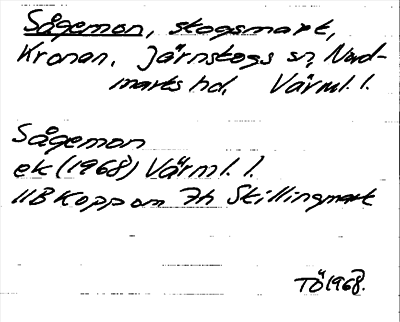 Sågemon, skogsmark,
Kronan. Järnskogs sn, Nord-
marks hd, Värml. l.
Sågemon
ek (1968) Värml. l.
11B Koppom 7h Skillingmark
TÖ 1968.